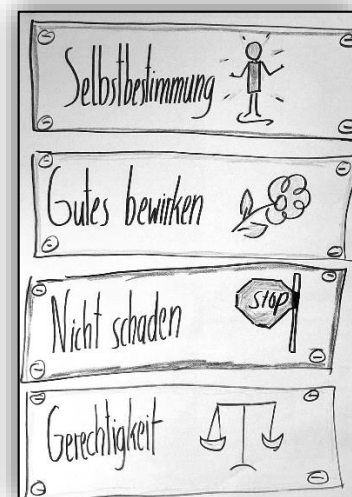 Selbstbestimmung
Gutes bewirken
Nicht schaden
STOP
Gerechtigkeit